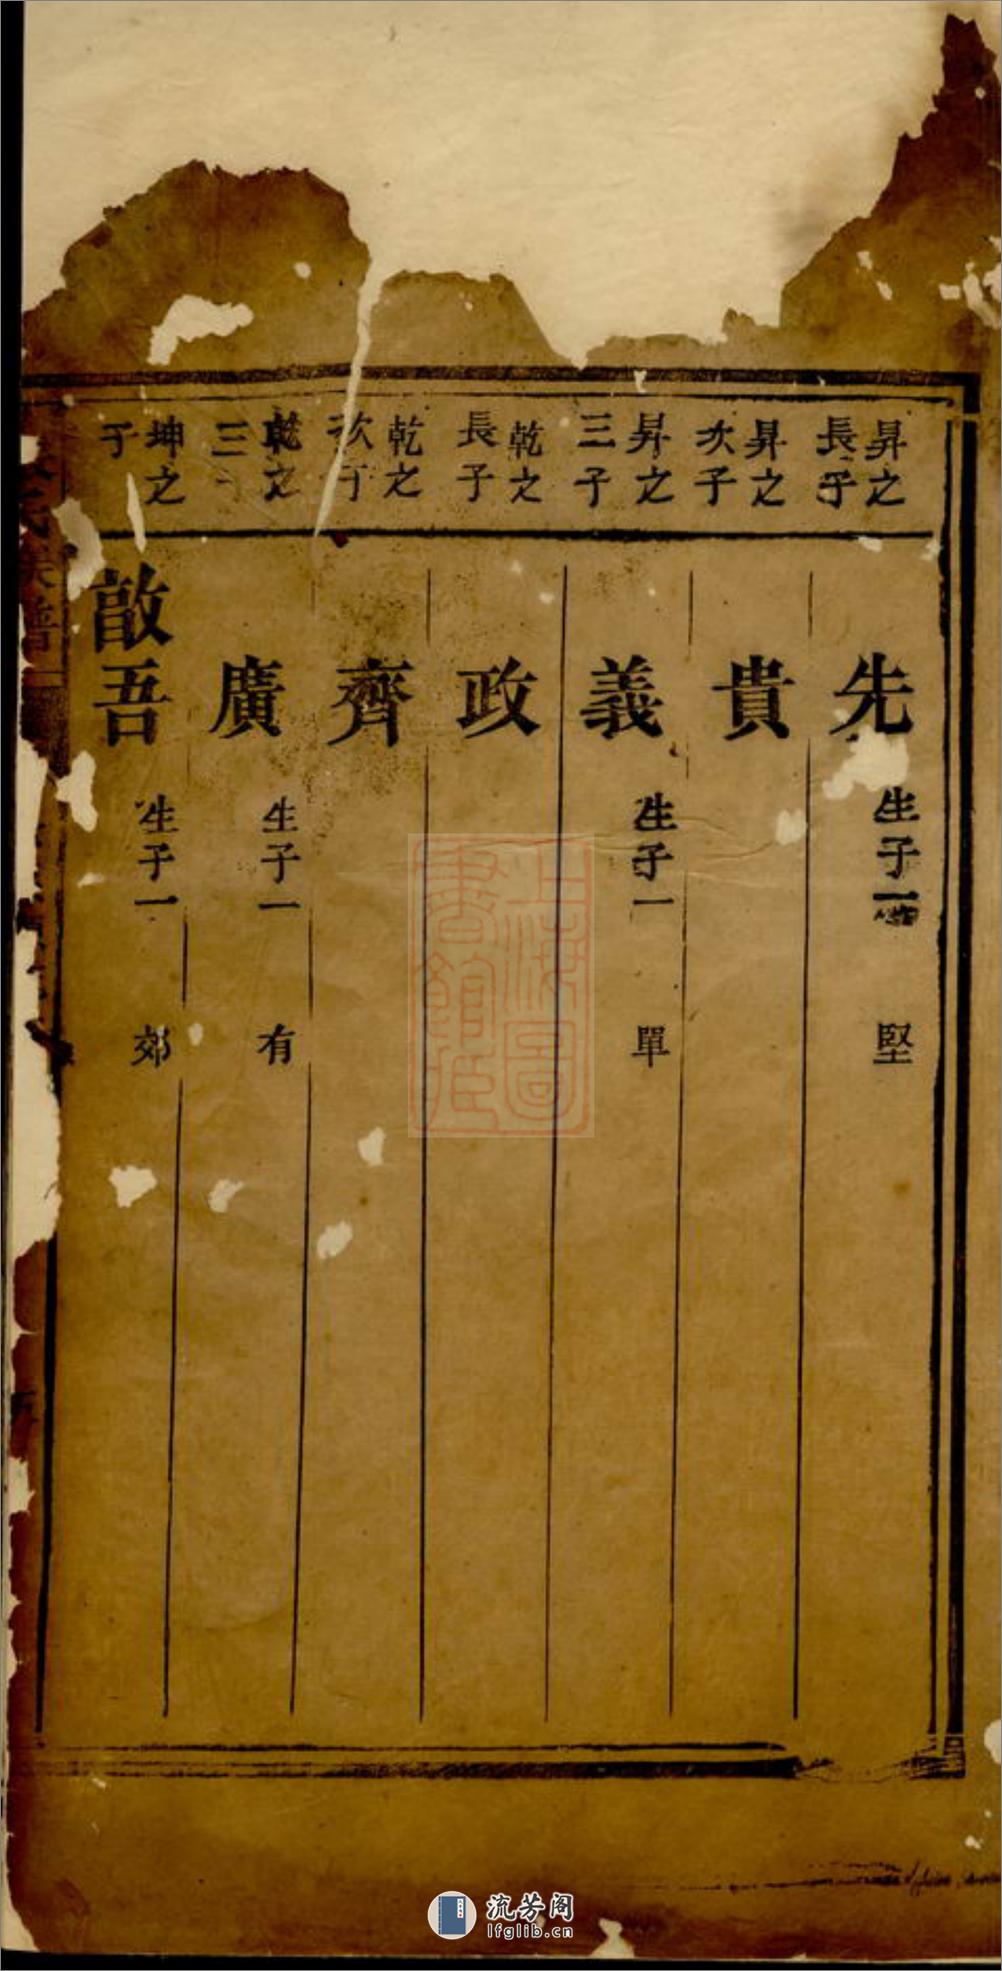 昇之
長子
先
生子一
堅
昇之
次子
貴
昇之
三子
義
生子一
單
乾之
長子
政
乾之
次子
齊
乾之
三
廣
生子一
有
坤之
子
啟吾
生子一
郊
氏族譜
上海圖
書館藏
流芳阁
lfglib.cn